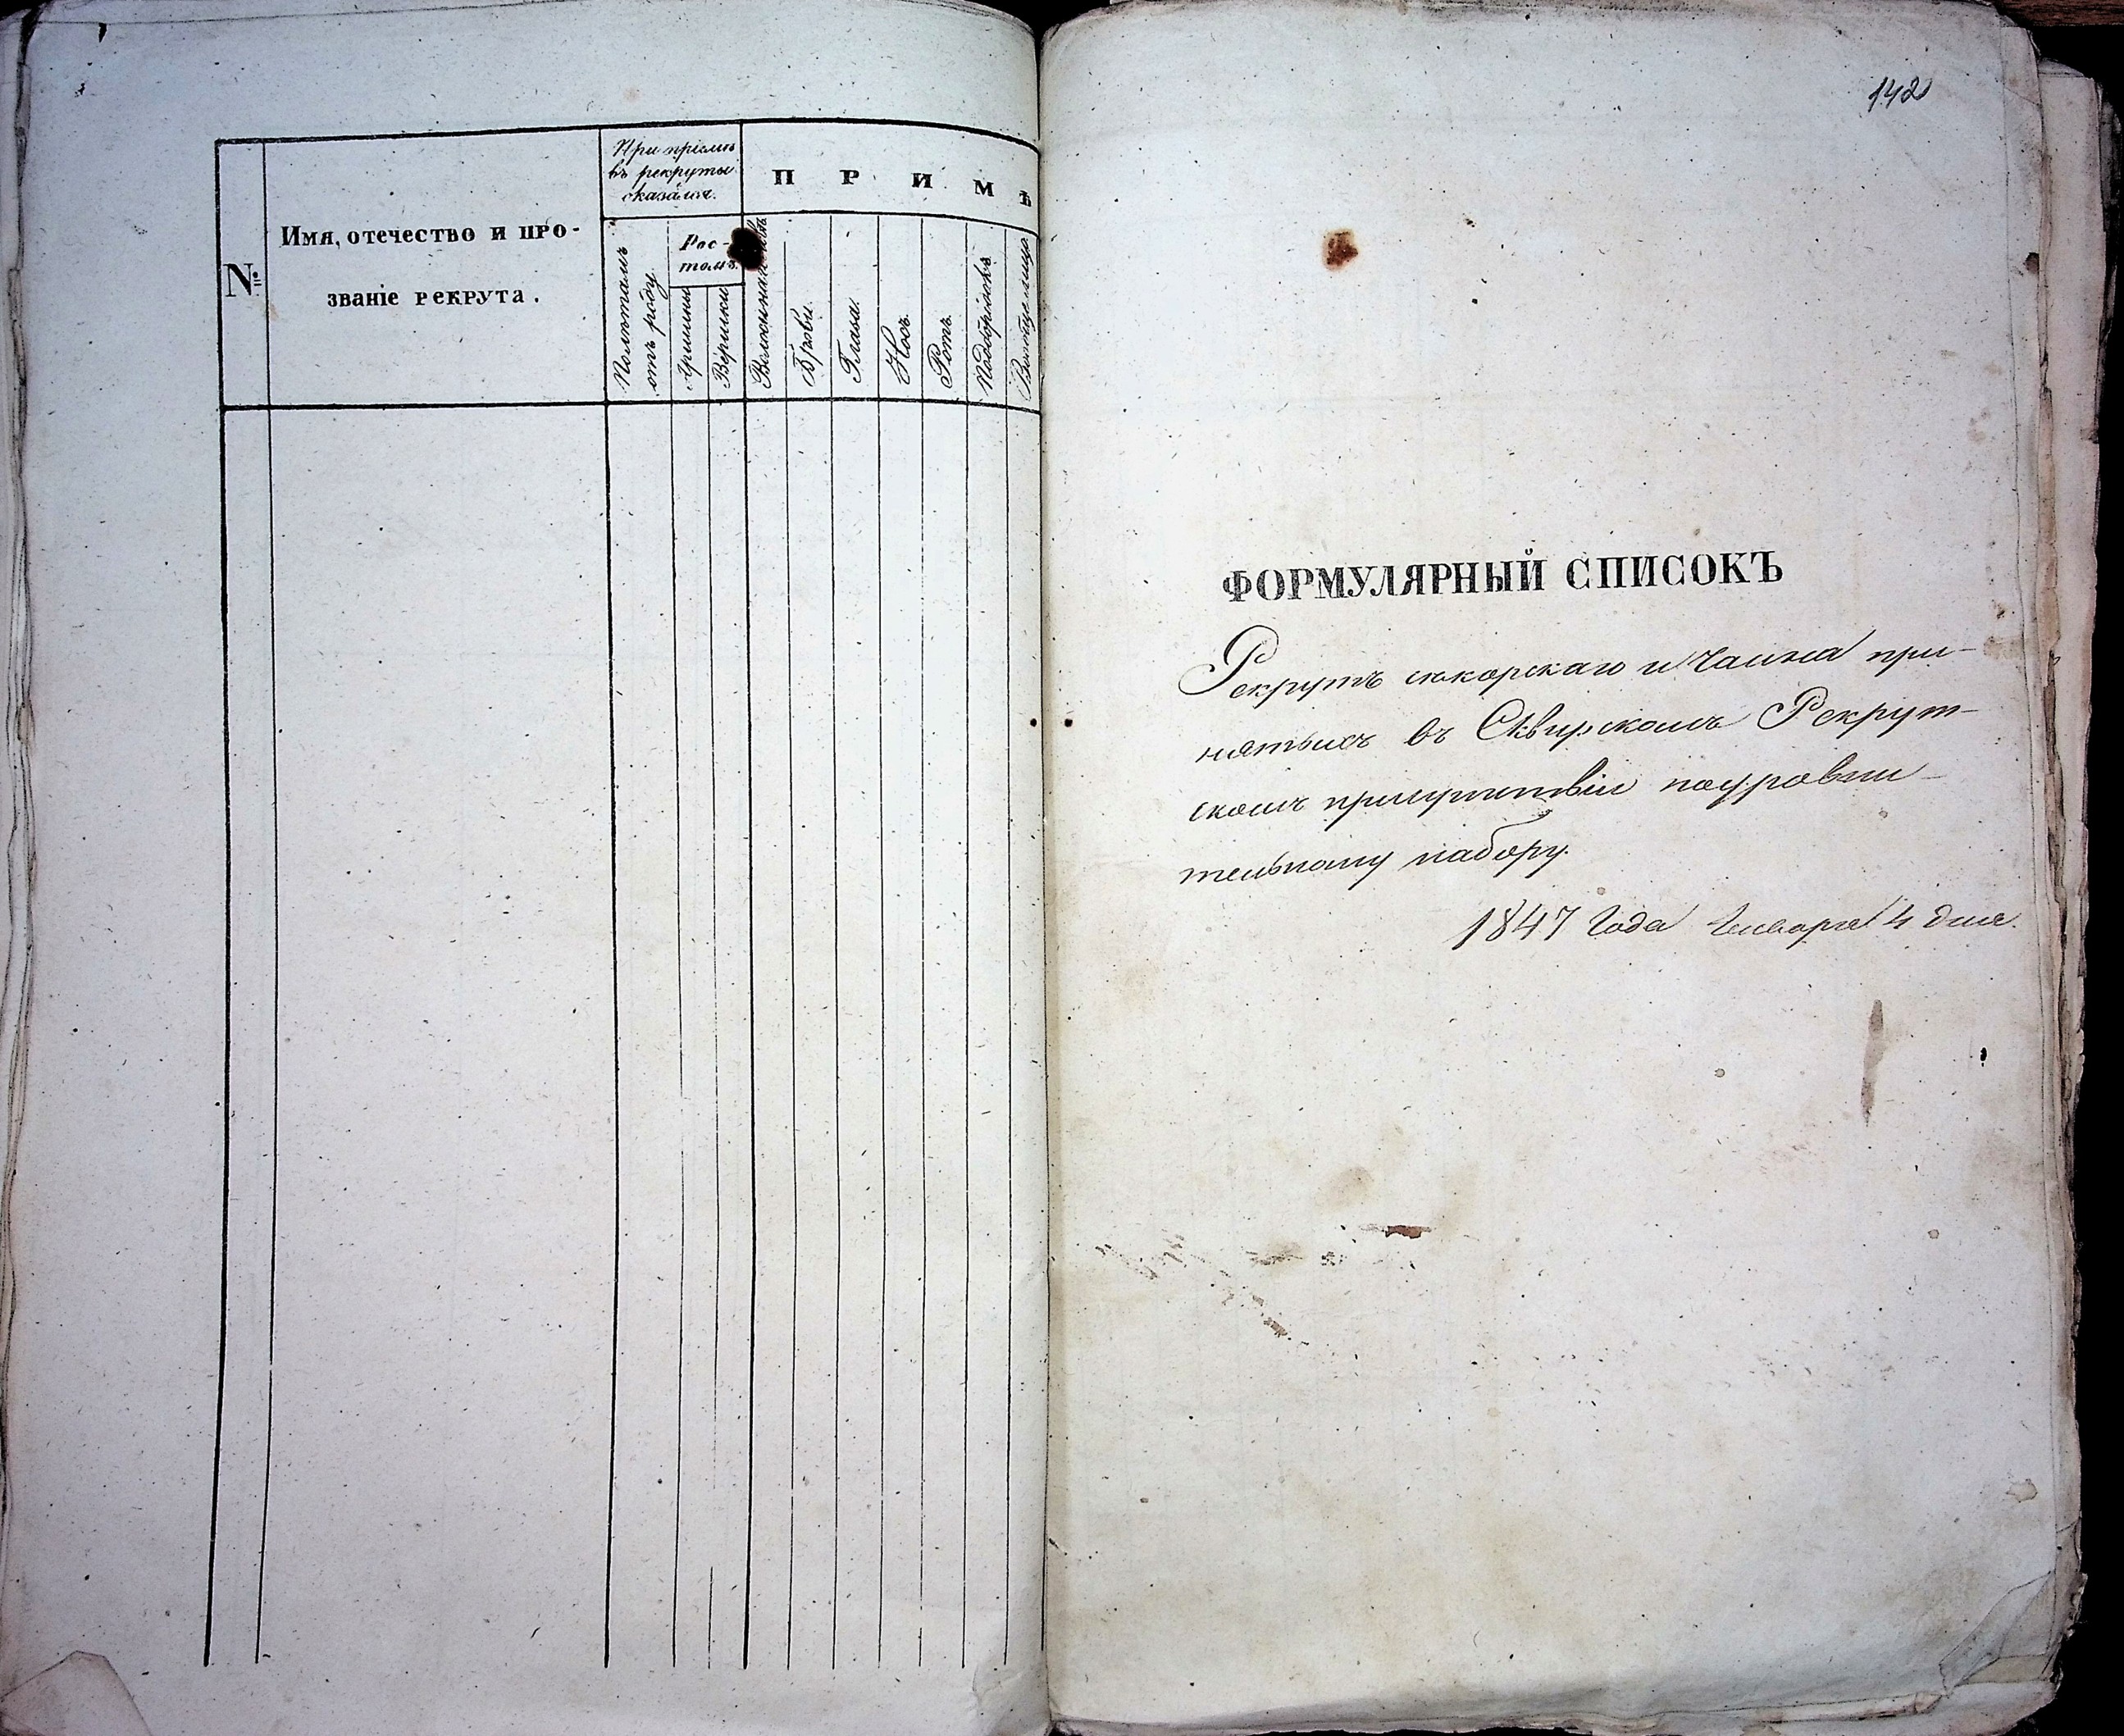 №
Имя, отечество и про-
званіе рекрута.
При пріемѣ
въ рекруты
оказался.
Полѣтамъ
отъ роду
Рос-
томъ.
Аршины
Вершки
ПРИМѢ
Волосы на
Брови.
Глаза.
Носъ.
Ротъ.
Подбородокъ
Вообще лицо
142
ФОРМУЛЯРНЫЙ СПИСОКЪ
Рекрутъ при-
нятыхъ въ Сквирскомъ Рекрут-
скомъ присутствіи поуравни-
тельному набору.
1847 Года Января 4 дня.